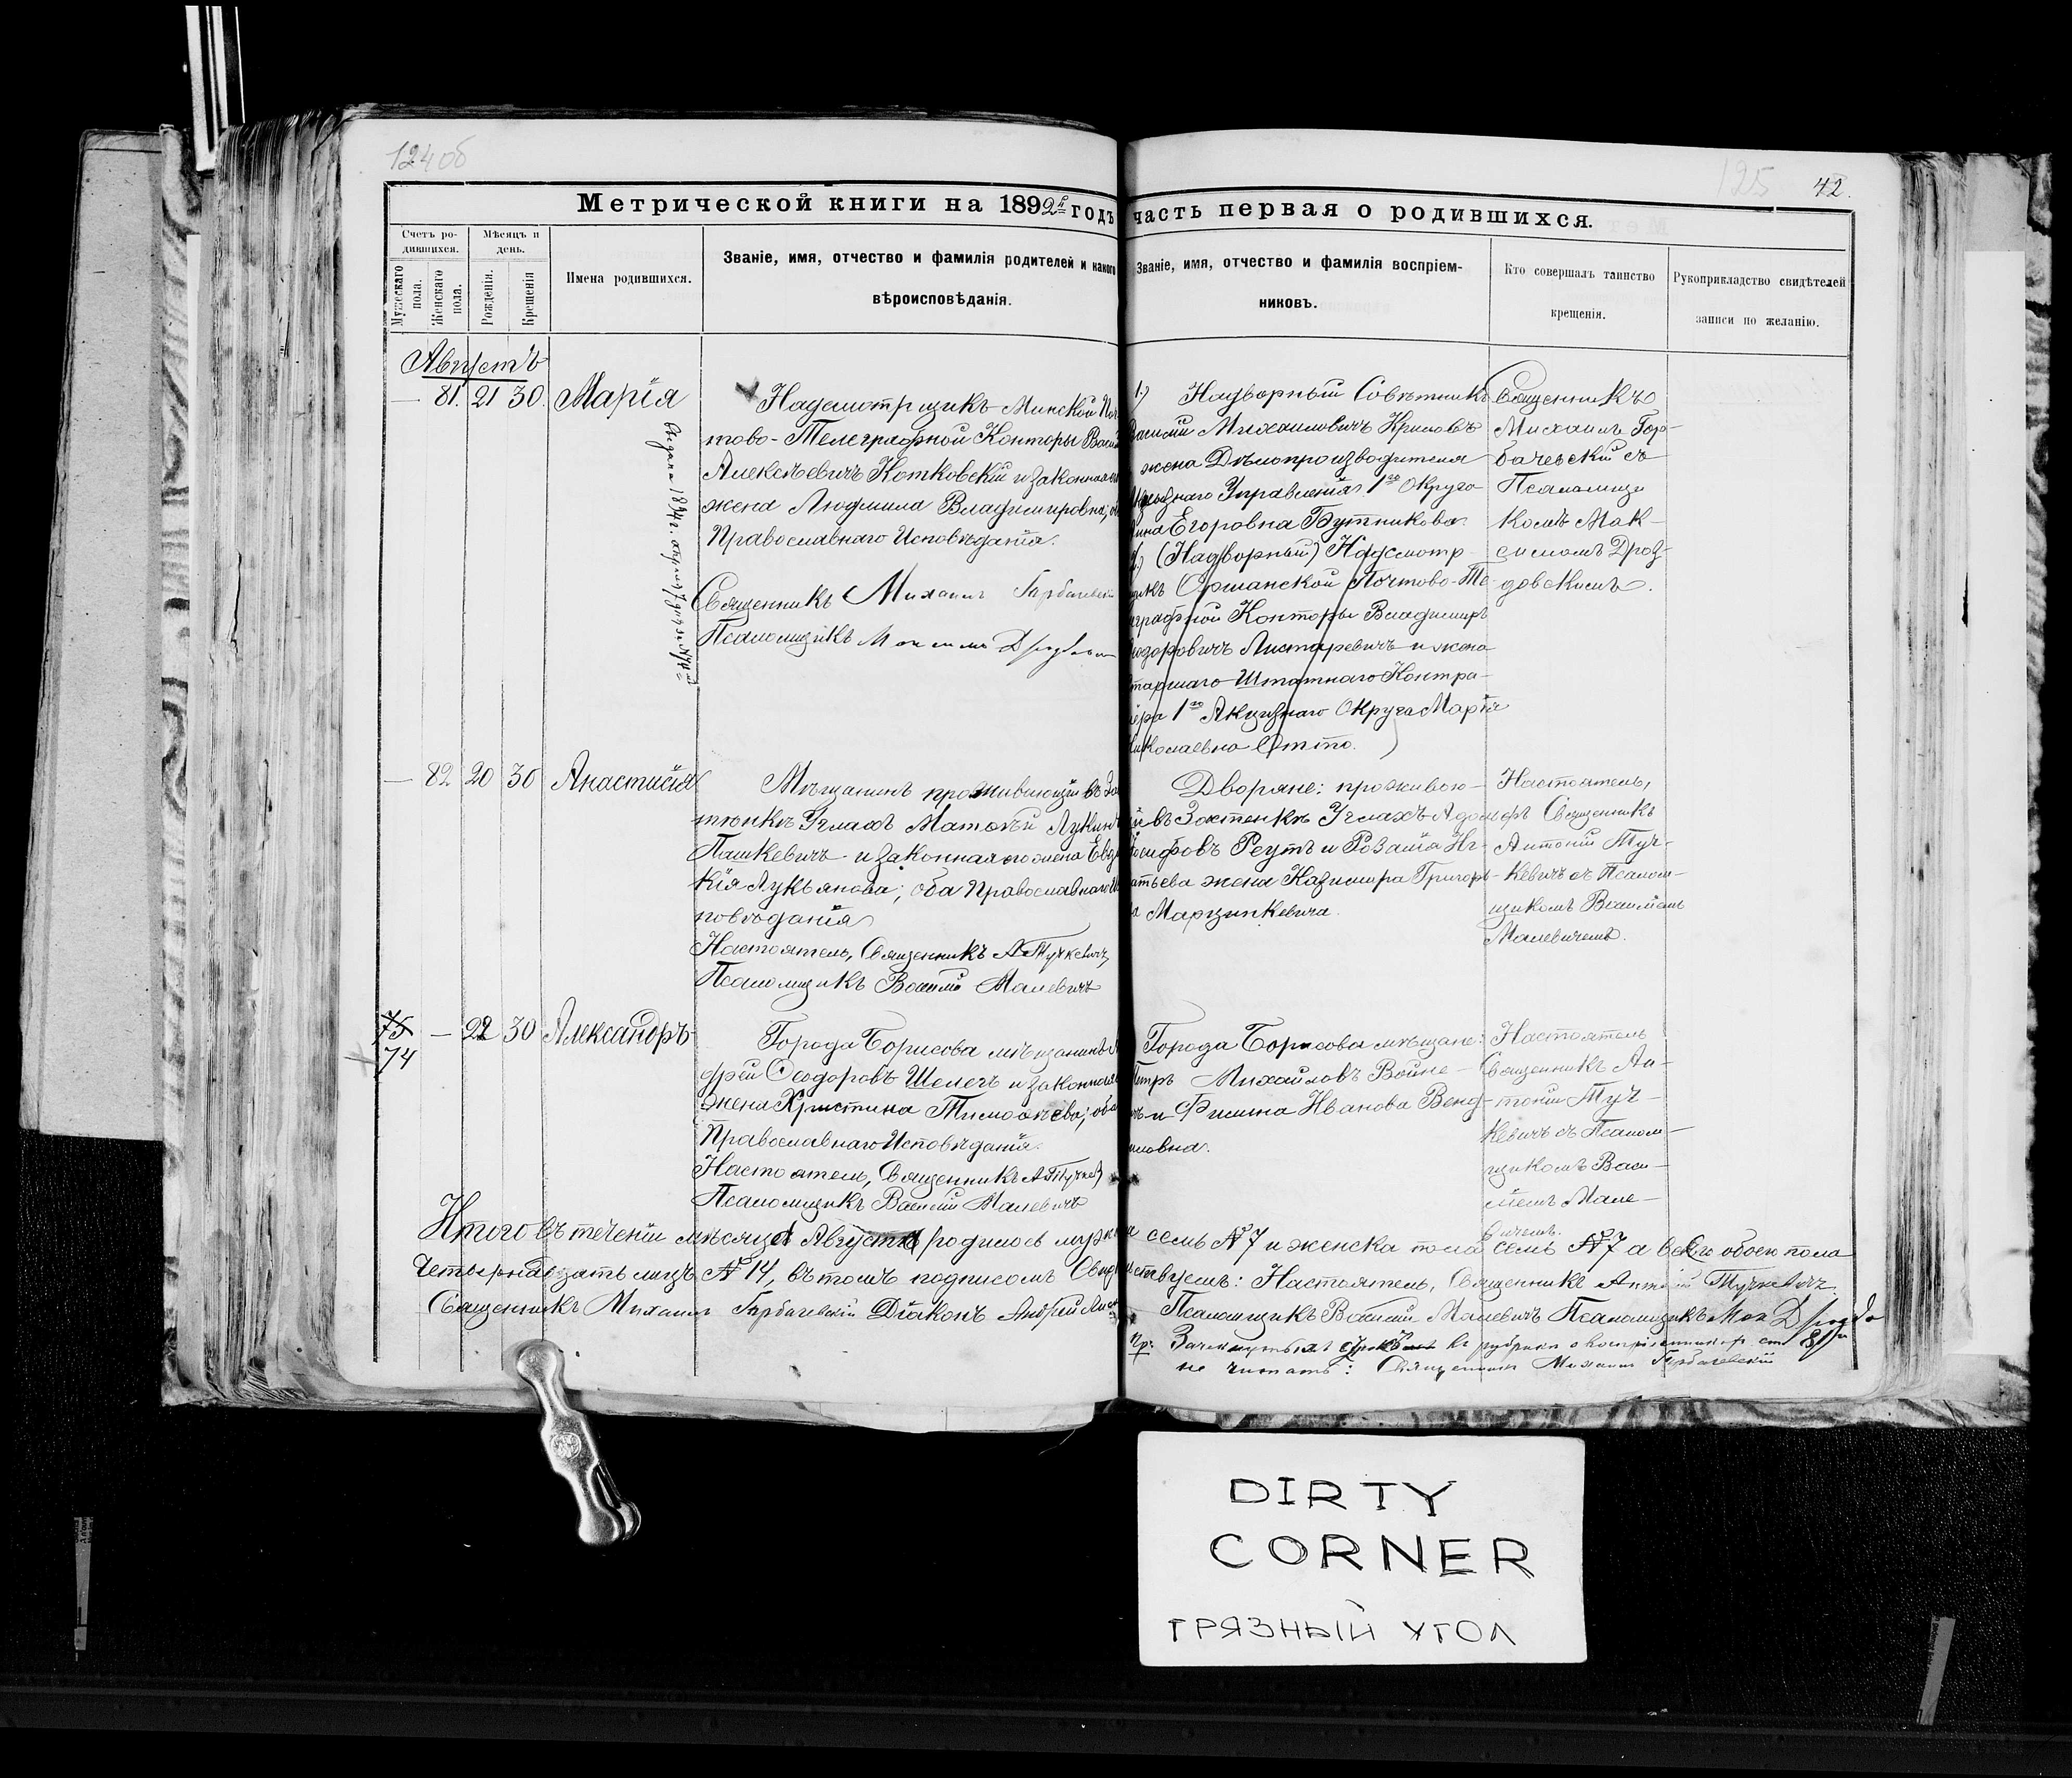 124об
125
42.
Метрической книги на 1892й годъ часть первая о родившихся.
Счетъ родившихся.
Мужескаго пола.
Женскаго пола.
Мѣсяцъ и день.
Рожденія.
Крещенія
Имена родившихся.
Званіе, имя, отчество и фамилія родителей и какого
вѣроисповѣданія.
Званіе, имя, отчество и фамилія воспріем-
никовъ.
Кто совершалъ таинство
крещенія.
Рукоприкладство свидѣтелей
записи по желанію.
Августъ
— 81. 21 30. Марія
Надсмотрщикъ Минской По
тово-Телеграфной Конторы Васи
Алексѣевичъ Котковскій и законная
жена Людмила Владимировна;
Православнаго Исповѣданія.
Священникъ Михаилъ Горбачевскій
Псаломщикъ
выдана 1894 г.
1.) Надворный Совѣтникъ
Василій Михаиловичъ Крыловъ
жена Дѣлопроизводителя
Управленія 1го Округа
Егоровна Бутникова.
2.) (Надворный) Надсмотр-
щикъ Оршанской Почтово-Те-
леграфной Конторы Владимиръ
Листаревичъ и жена
Старшаго Штатнаго Контро-
лера 1го Акцизнаго Округа Марія
Николаевна Отто. )
Священникъ
Михаилъ Гор-
бачевскій съ
Псаломщи
комъ Мак-
симомъ Дроз-
довскимъ.
— 82 20 30 Анастасія
Мѣщанинъ проживающій въ За
стѣнкѣ Углахъ Матѳѣй Лукинъ
Пашкевичъ и законная его жена Евдо
кія Лукьянова; оба Православнаго Ис
повѣданія
Настоятель, Священникъ А. Тучкевичъ,
Псаломщикъ Василій Малевичъ
Дворяне: проживаю-
й въ Застенкѣ Углахъ Адамъ
Іосифовъ Реутъ и Розалія Иг-
натьева жена Казимира Григорь-
а Марцинкевича.
Настоятель,
Священникъ
Антоній Туч-
кевичъ съ Псалом-
щикомъ Василіемъ
Малевичемъ.
75
74
— 22 30 Александръ
Города Борисова мѣщанинъ А
дрей Ѳеодоровъ Шелегъ и законная
жена Христина Тимоѳѣева; оба
Православнаго Исповѣданія.
Настоятель, Священникъ А. Тучкев
Псаломщикъ Василій Малевичъ
Города Борисова мѣщане:
Петръ Михайловъ Войне-
чъ и Фелиша Иванова Венд-
иловна.
Настоятель
Священникъ Ан-
тоній Туч-
кевичъ съ Псалом-
щикомъ Васи-
ліемъ Мале-
вичемъ.
Итого въ теченіи мѣсяца Августа родилось мужска семь № 7 и женска пола семь № 7 а всего обоего пола
Четырнадцать лицъ № 14, въ томъ подписомъ Свидѣтельствуемъ: Настоятель, Священникъ Антоній Тучкевичъ.
Священникъ Михаилъ Горбачевскій Діаконъ Андрей Псаломщикъ Василій Малевичъ Псаломщикъ
Пр: Зачеркнутыхъ въ рубрикѣ о воспріемникахъ ст 81й
не читать: Священникъ Михаилъ Горбачевскій
DIRTY
CORNER
ГРЯЗНЫЙ УГОЛ